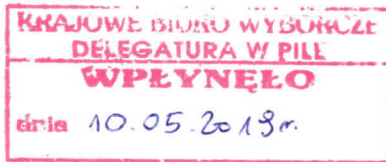 KRAJOWE BIURO WYBORCZE
DELEGATURA W PILE
WPŁYNĘŁO
dnia 10.05.2019r.